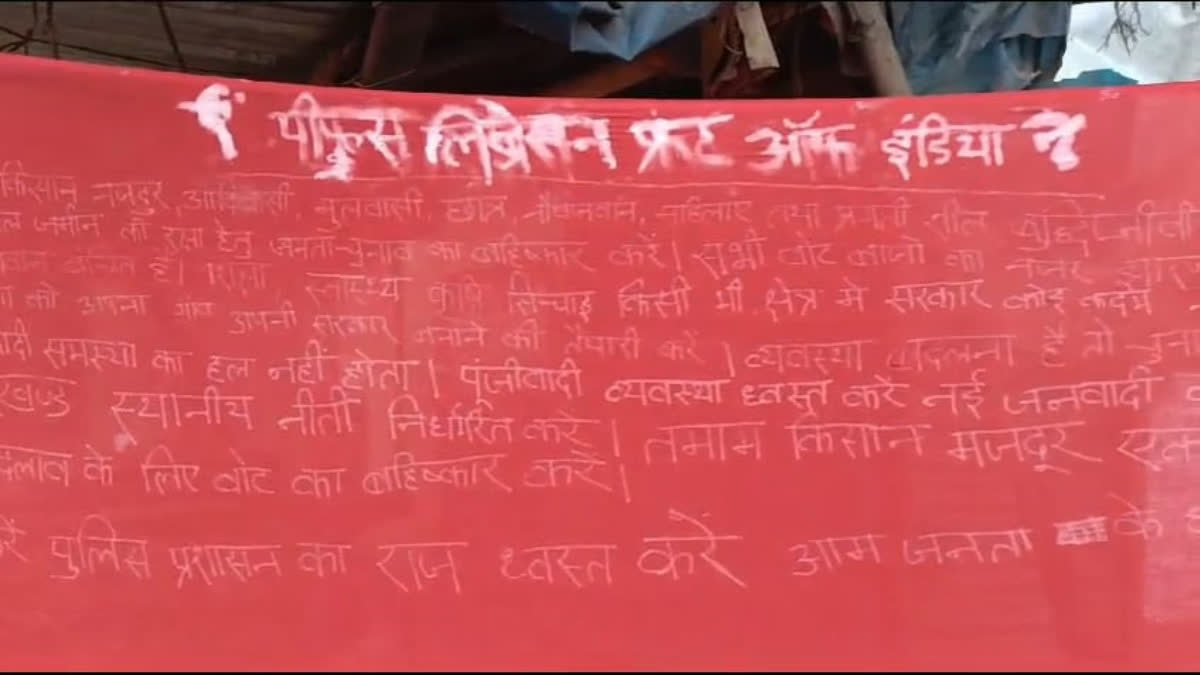 पीपुल्स लिब्रेसन फ्रंट ऑफ इंडिया
किसान मजदुर, आदिवासी, मुलवासी, छात्र, नौजवान, महिलाएं तथा
जमीन की रक्षा हेतु जनता-चुनाव का बहिष्कार करें। सभी वोट बाजो का नजर
वंचित है। शिक्षा, स्वास्थ्य कृषि सिन्चाई किसी भी क्षेत्र मे सरकार कोई कदम
को अपना गांव अपनी सरकार बनाने की तैयारी करें। व्यवस्था बदलना है तो
समस्या का हल नहीं होता। पूंजीवादी व्यवस्था ध्वस्त करें नई जनवादी
स्थानीय नीती निर्धारित करें। तमाम किसान मजदूर
के लिए वोट का बहिष्कार करें।
पुलिस प्रशासन का राज ध्वस्त करें आम जनता के